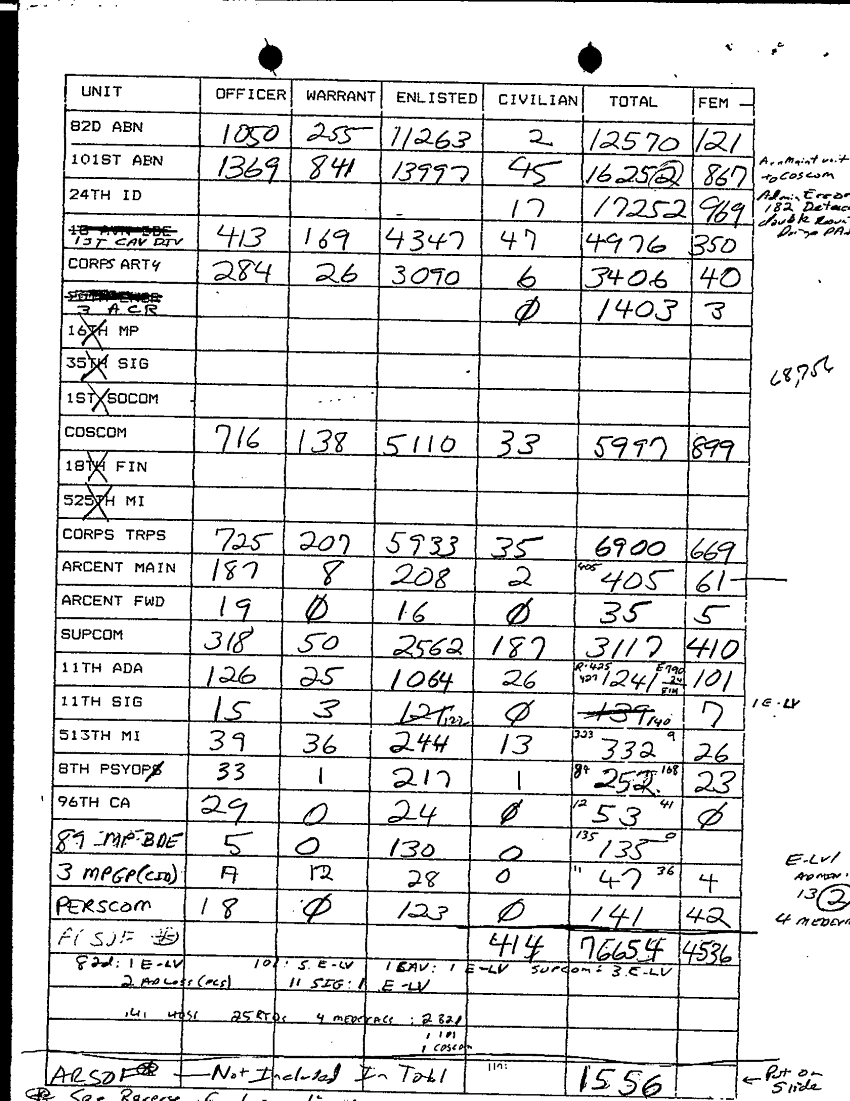 UNIT OFFICER WARRANT ENLISTED CIVILIAN TOTAL FEM
82D ABN 1050 255 11263 2 12570 121
101ST ABN 1369 841 13997 45 16252 867
24TH ID 17 17252 969
1ST CAV DIV 413 169 4347 47 4976 350
CORPS ARTY 284 26 3090 6 3406 40
3 ACR ∅ 1403 3
16TH MP
35TH SIG
68,756
1ST SOCOM
COSCOM 716 138 5110 33 5997 899
18TH FIN
525TH MI
CORPS TRPS 725 207 5933 35 6900 669
ARCENT MAIN 187 8 208 2 405 405 61
ARCENT FWD 19 ∅ 16 ∅ 35 5
SUPCOM 318 50 2562 187 3117 410
11TH ADA 126 25 1064 26 1241 101
11TH SIG 15 3 121 122 ∅ 139 140 7 1 E-LV
513TH MI 39 36 244 13 323 332 9 26
8TH PSYOPS 33 1 217 1 84 252 168 23
96TH CA 29 0 24 ∅ 12 53 41 ∅
89 MP BDE 5 0 130 0 135 135 0
3 MPGP(CID) 7 12 28 0 11 47 36 4
PERSCOM 18 ∅ 123 ∅ 141 42
414 76654 4536
82d: 1 E-LV 101: 5 E-LV 1 CAV: 1 E-LV SUPCOM: 3 E-LV
11 SIG: 1 E-LV
1 101
1 COSCOM
ARSOF — Not Included In Total 1556 ← Put on
Slide